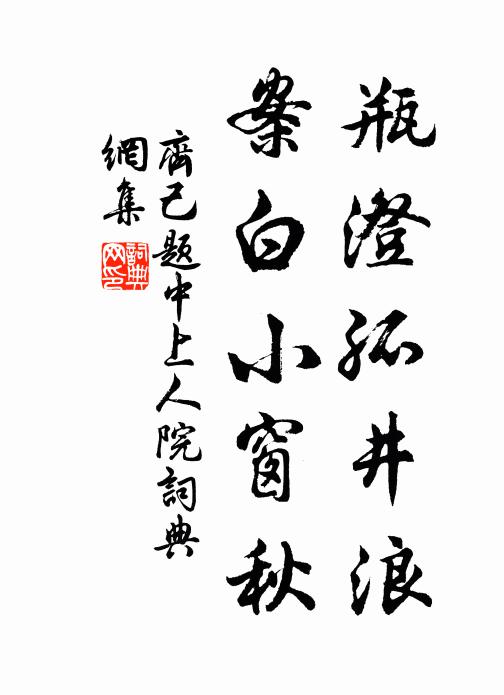 瓶澄孤井浪
案白小窗秋
齊己題中上人院詞典
網集
詞典
网印